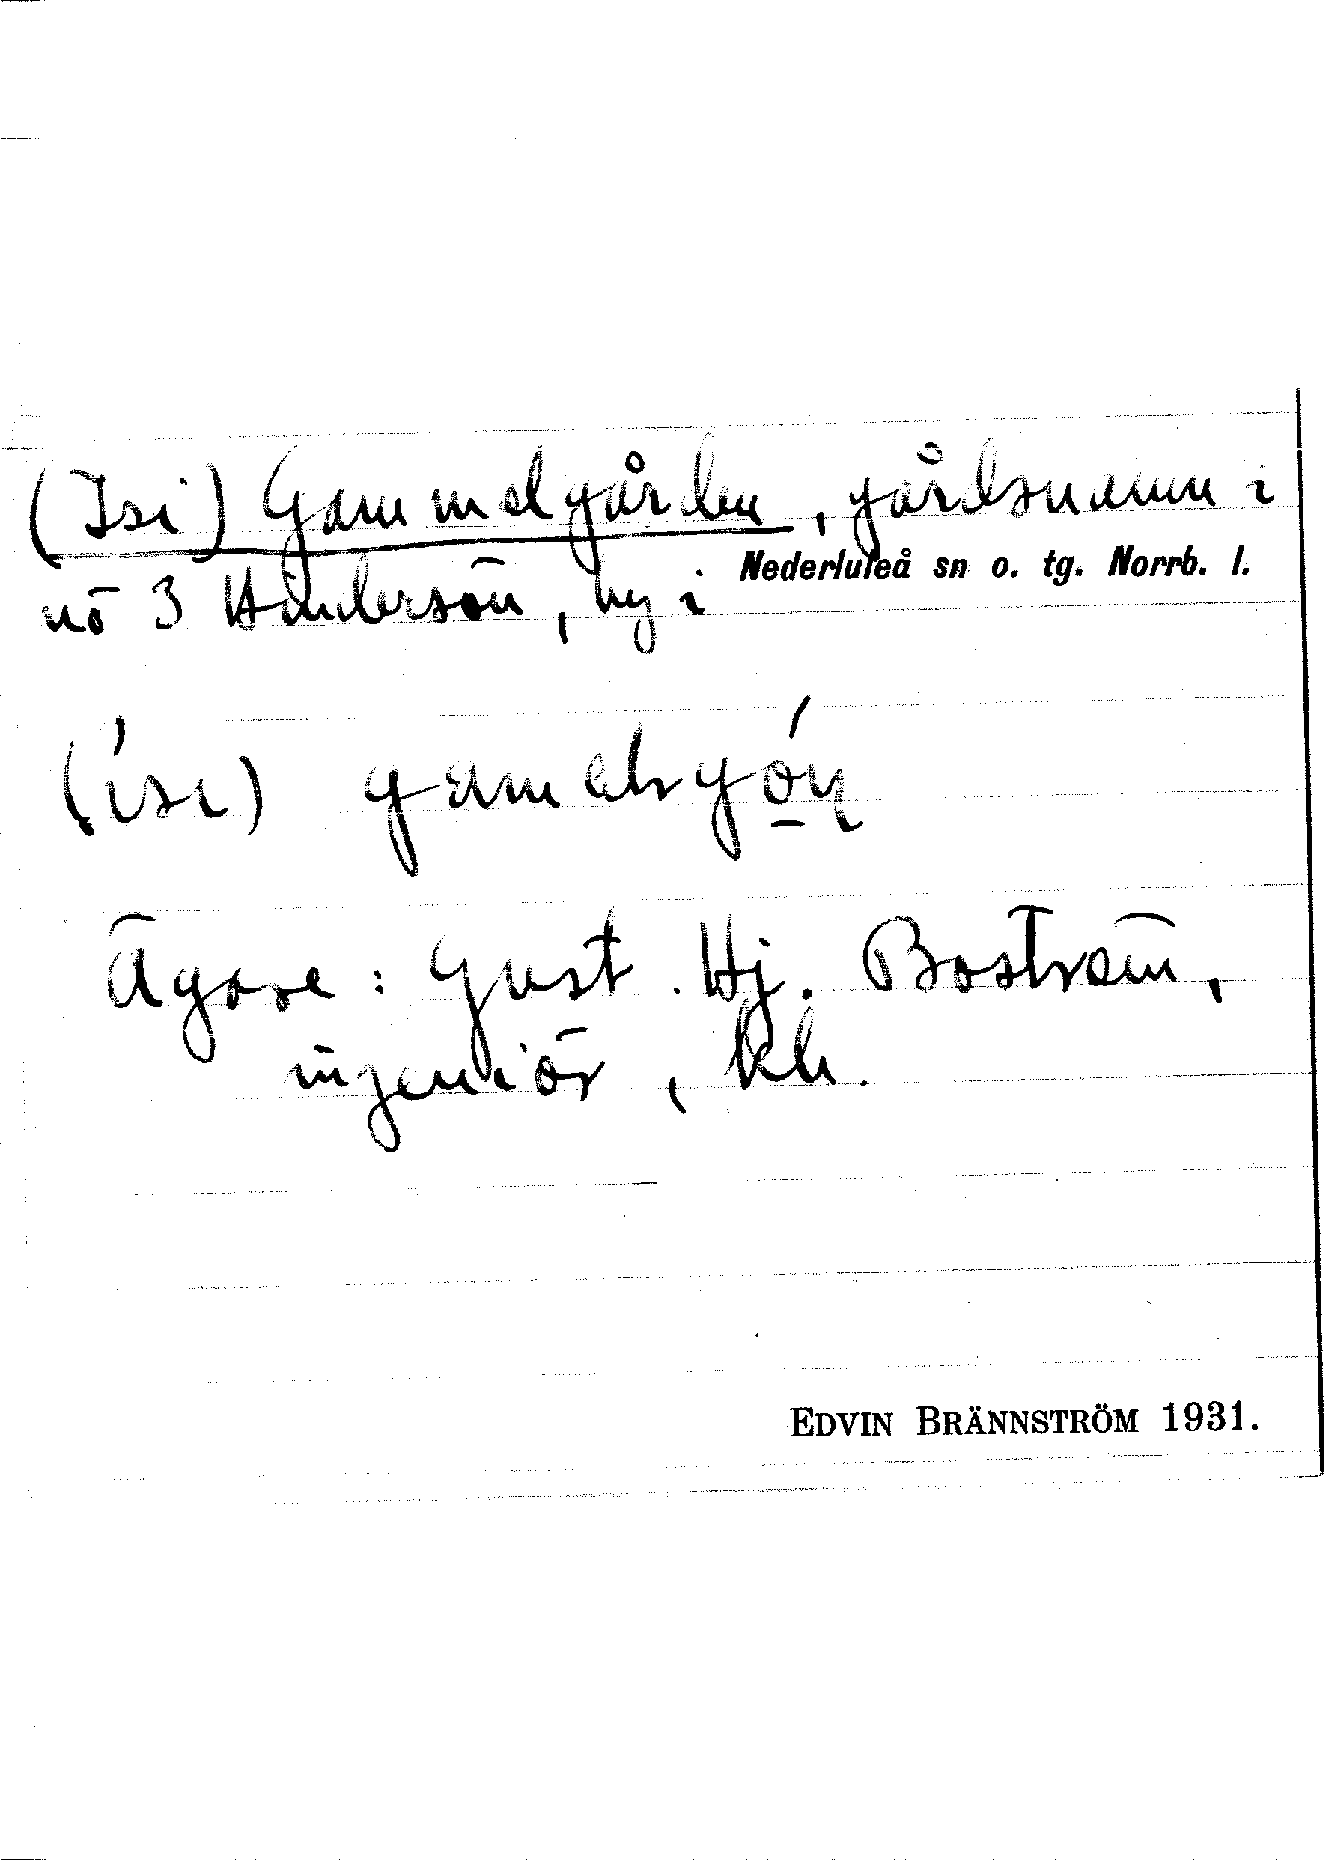 (Isi) Gammelgården, gårdsnamn i
nö 3 Hindersön, by i Nederluleå sn o. tg. Norrb. l.
(ísi)
Ägare: Gust. Hj. Boström,
ingeniör, kh.
EDVIN BRÄNNSTRÖM 1931.